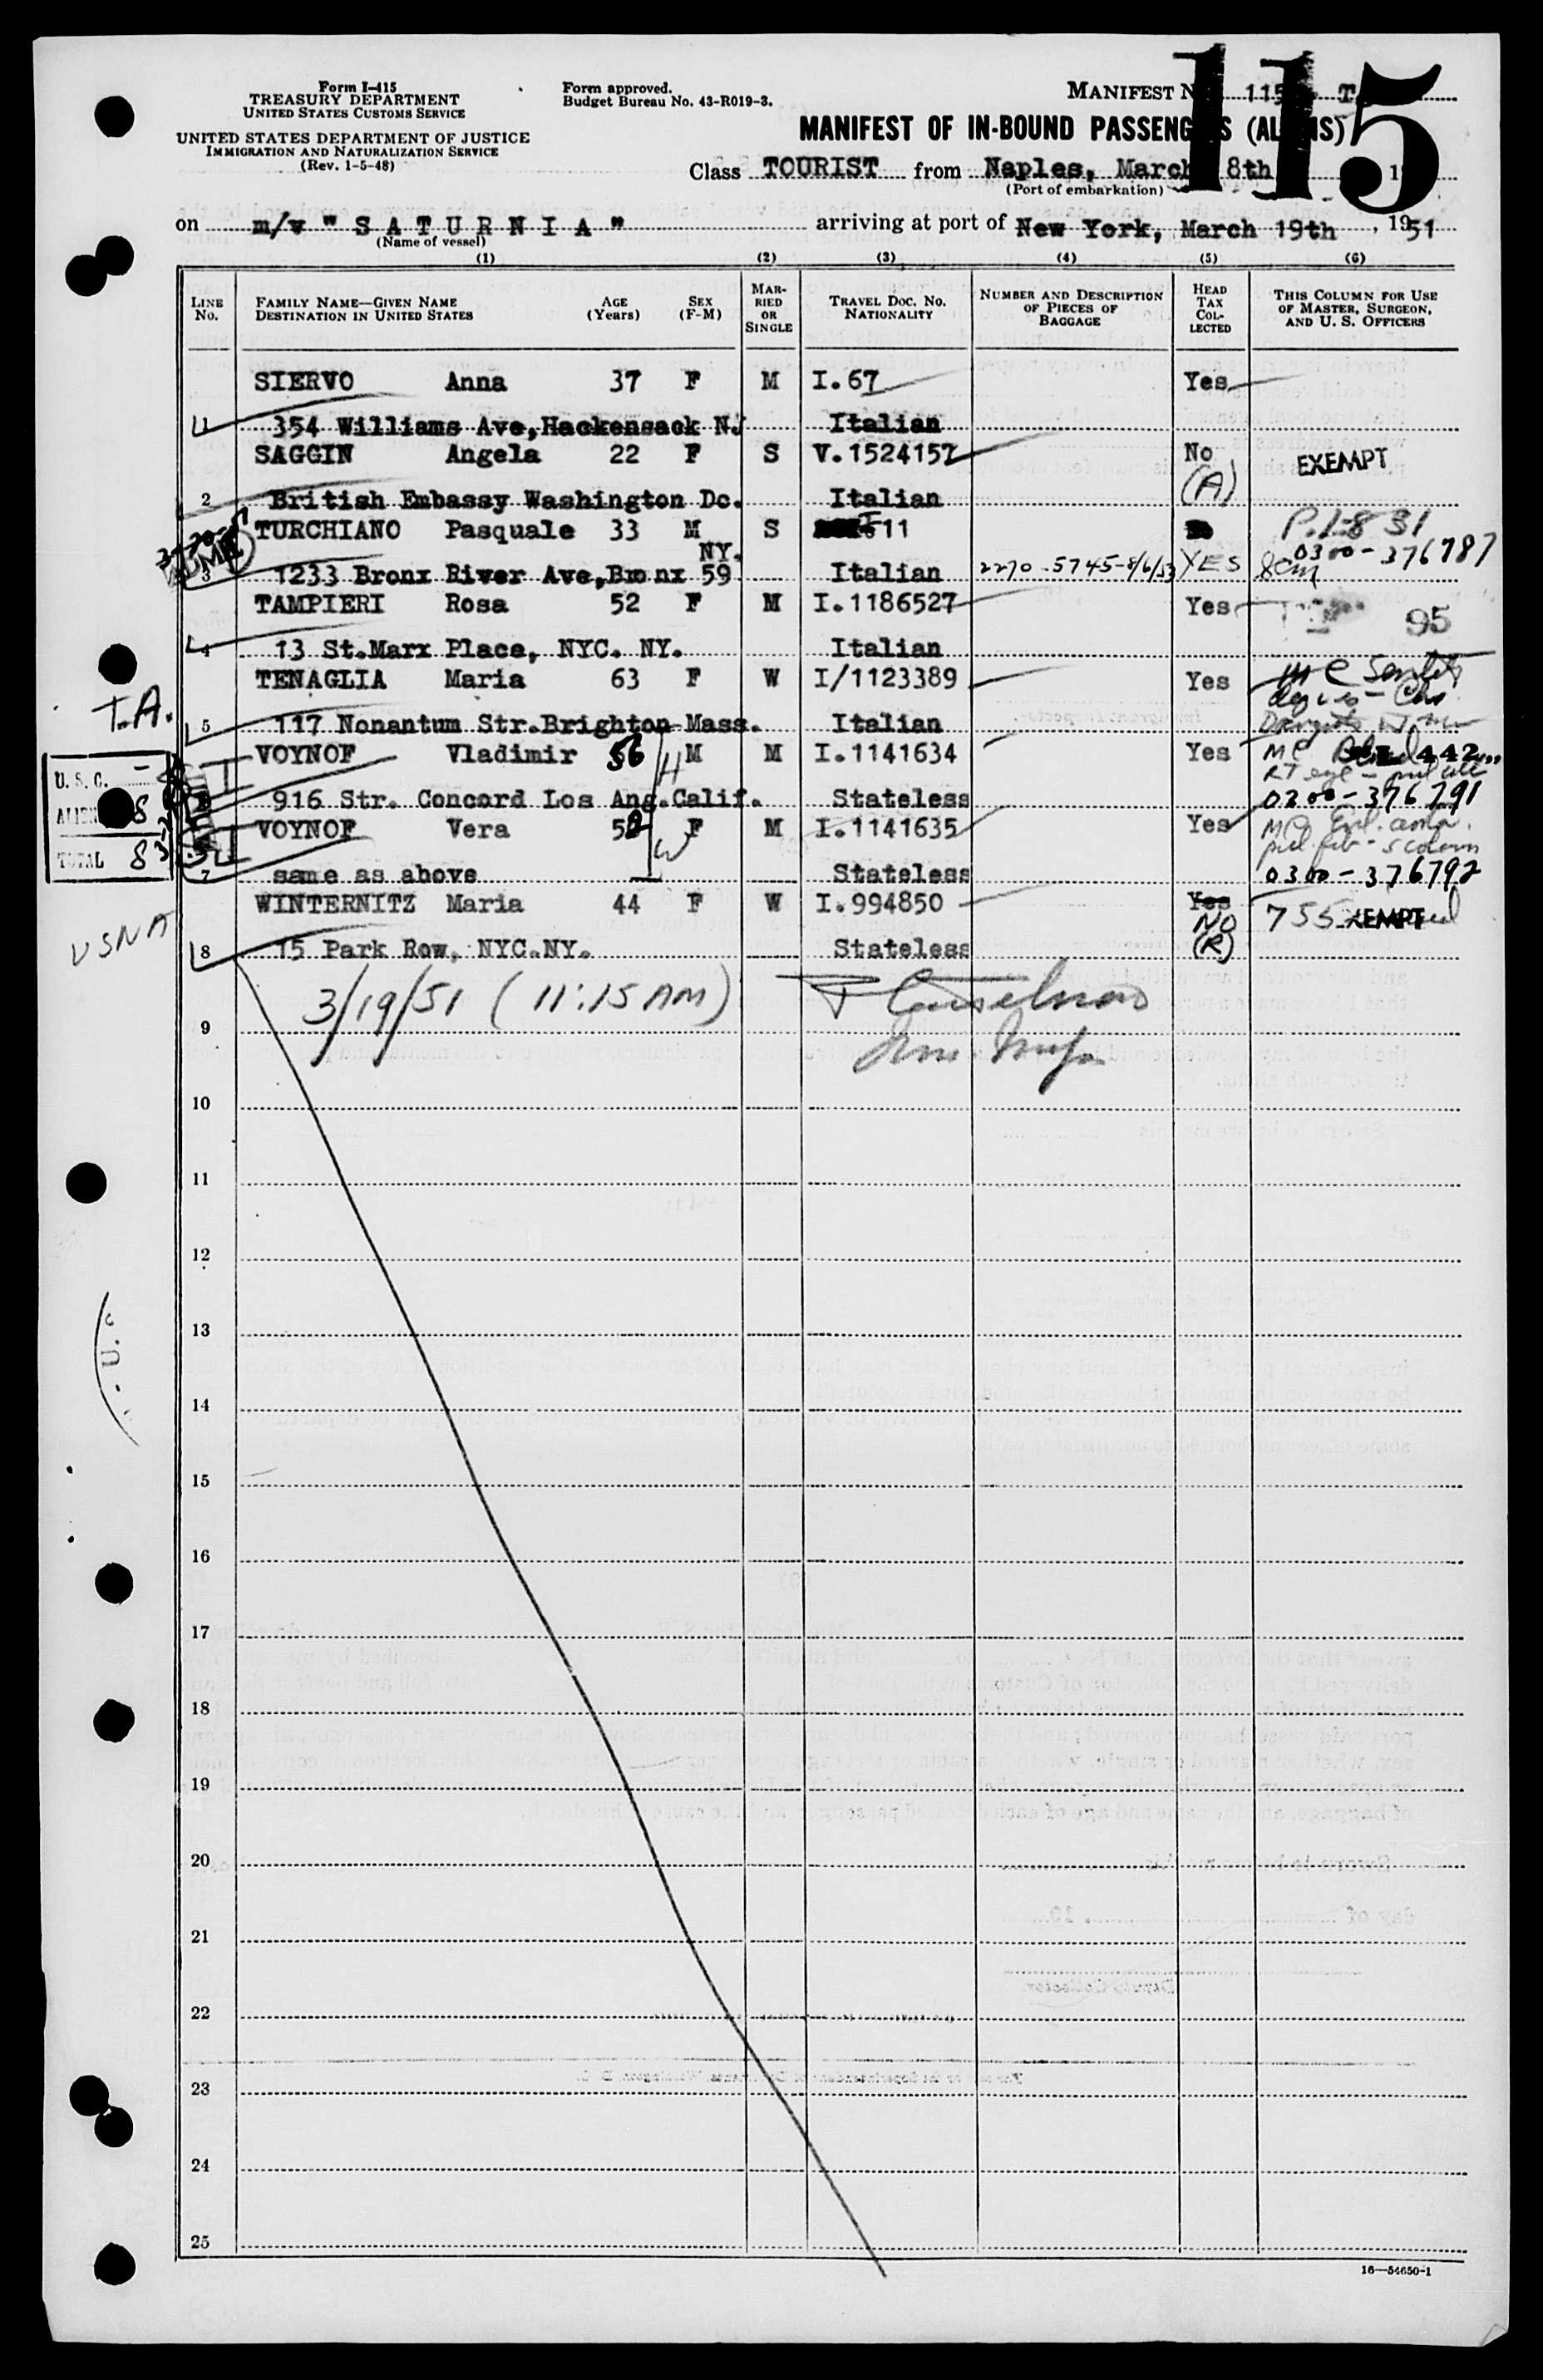 Form I-415
TREASURY DEPARTMENT
UNITED STATES CUSTOMS SERVICE
UNITED STATES DEPARTMENT OF JUSTICE
IMMIGRATION AND NATURALIZATION SERVICE
(Rev. 1-5-48)
Form approved.
Budget Bureau No. 43-R019-3.
MANIFEST N 115 T
115
MANIFEST OF IN-BOUND PASSENGERS (ALIENS)
Class TOURIST from Naples, March 8th
(Port of embarkation)
on m/v " S A T U R N I A " arriving at port of New York, March 19th, 1951
(Name of vessel)
(1) (2) (3) (4) (5) (6)
LINE No.
FAMILY NAME—GIVEN NAME
DESTINATION IN UNITED STATES
AGE (Years)
SEX (F-M)
MARRIED OR SINGLE
TRAVEL DOC. NO. NATIONALITY
NUMBER AND DESCRIPTION OF PIECES OF BAGGAGE
HEAD TAX COLLECTED
THIS COLUMN FOR USE OF MASTER, SURGEON, AND U. S. OFFICERS
SIERVO Anna 37 F M I.67 Yes
1 354 Williams Ave,Hackensack NJ Italian
SAGGIN Angela 22 F S V.1524157 No EXEMPT
2 British Embassy Washington Dc. Italian (A)
TURCHIANO Pasquale 33 M S I 11 P.L-831
NY.
3 1233 Bronx River Ave,Bronx 59 Italian 2270-5745-8/6/53 YES 0300-376787
TAMPIERI Rosa 52 F M I.1186527 Yes 95
4 13 St.Marx Place, NYC. NY. Italian
TENAGLIA Maria 63 F W I/1123389 Yes
T.A.
5 117 Nonantum Str.Brighton Mass. Italian
VOYNOF Vladimir 56 H M M I.1141634 Yes 442
916 Str. Concord Los Ang.Calif. Stateless 0300-376791
VOYNOF Vera 52 W F M I.1141635 Yes
7 same as above Stateless 0300-376792
WINTERNITZ Maria 44 F W I.994850 Yes 755 EXEMPT
NO
8 15 Park Row, NYC.NY. Stateless (R)
U. S. C. -
ALIEN 8
TOTAL 8
USNA
3/19/51 (11:15 AM)
9
10
11
12
13
14
15
16
17
18
19
20
21
22
23
24
25
16—54650-1